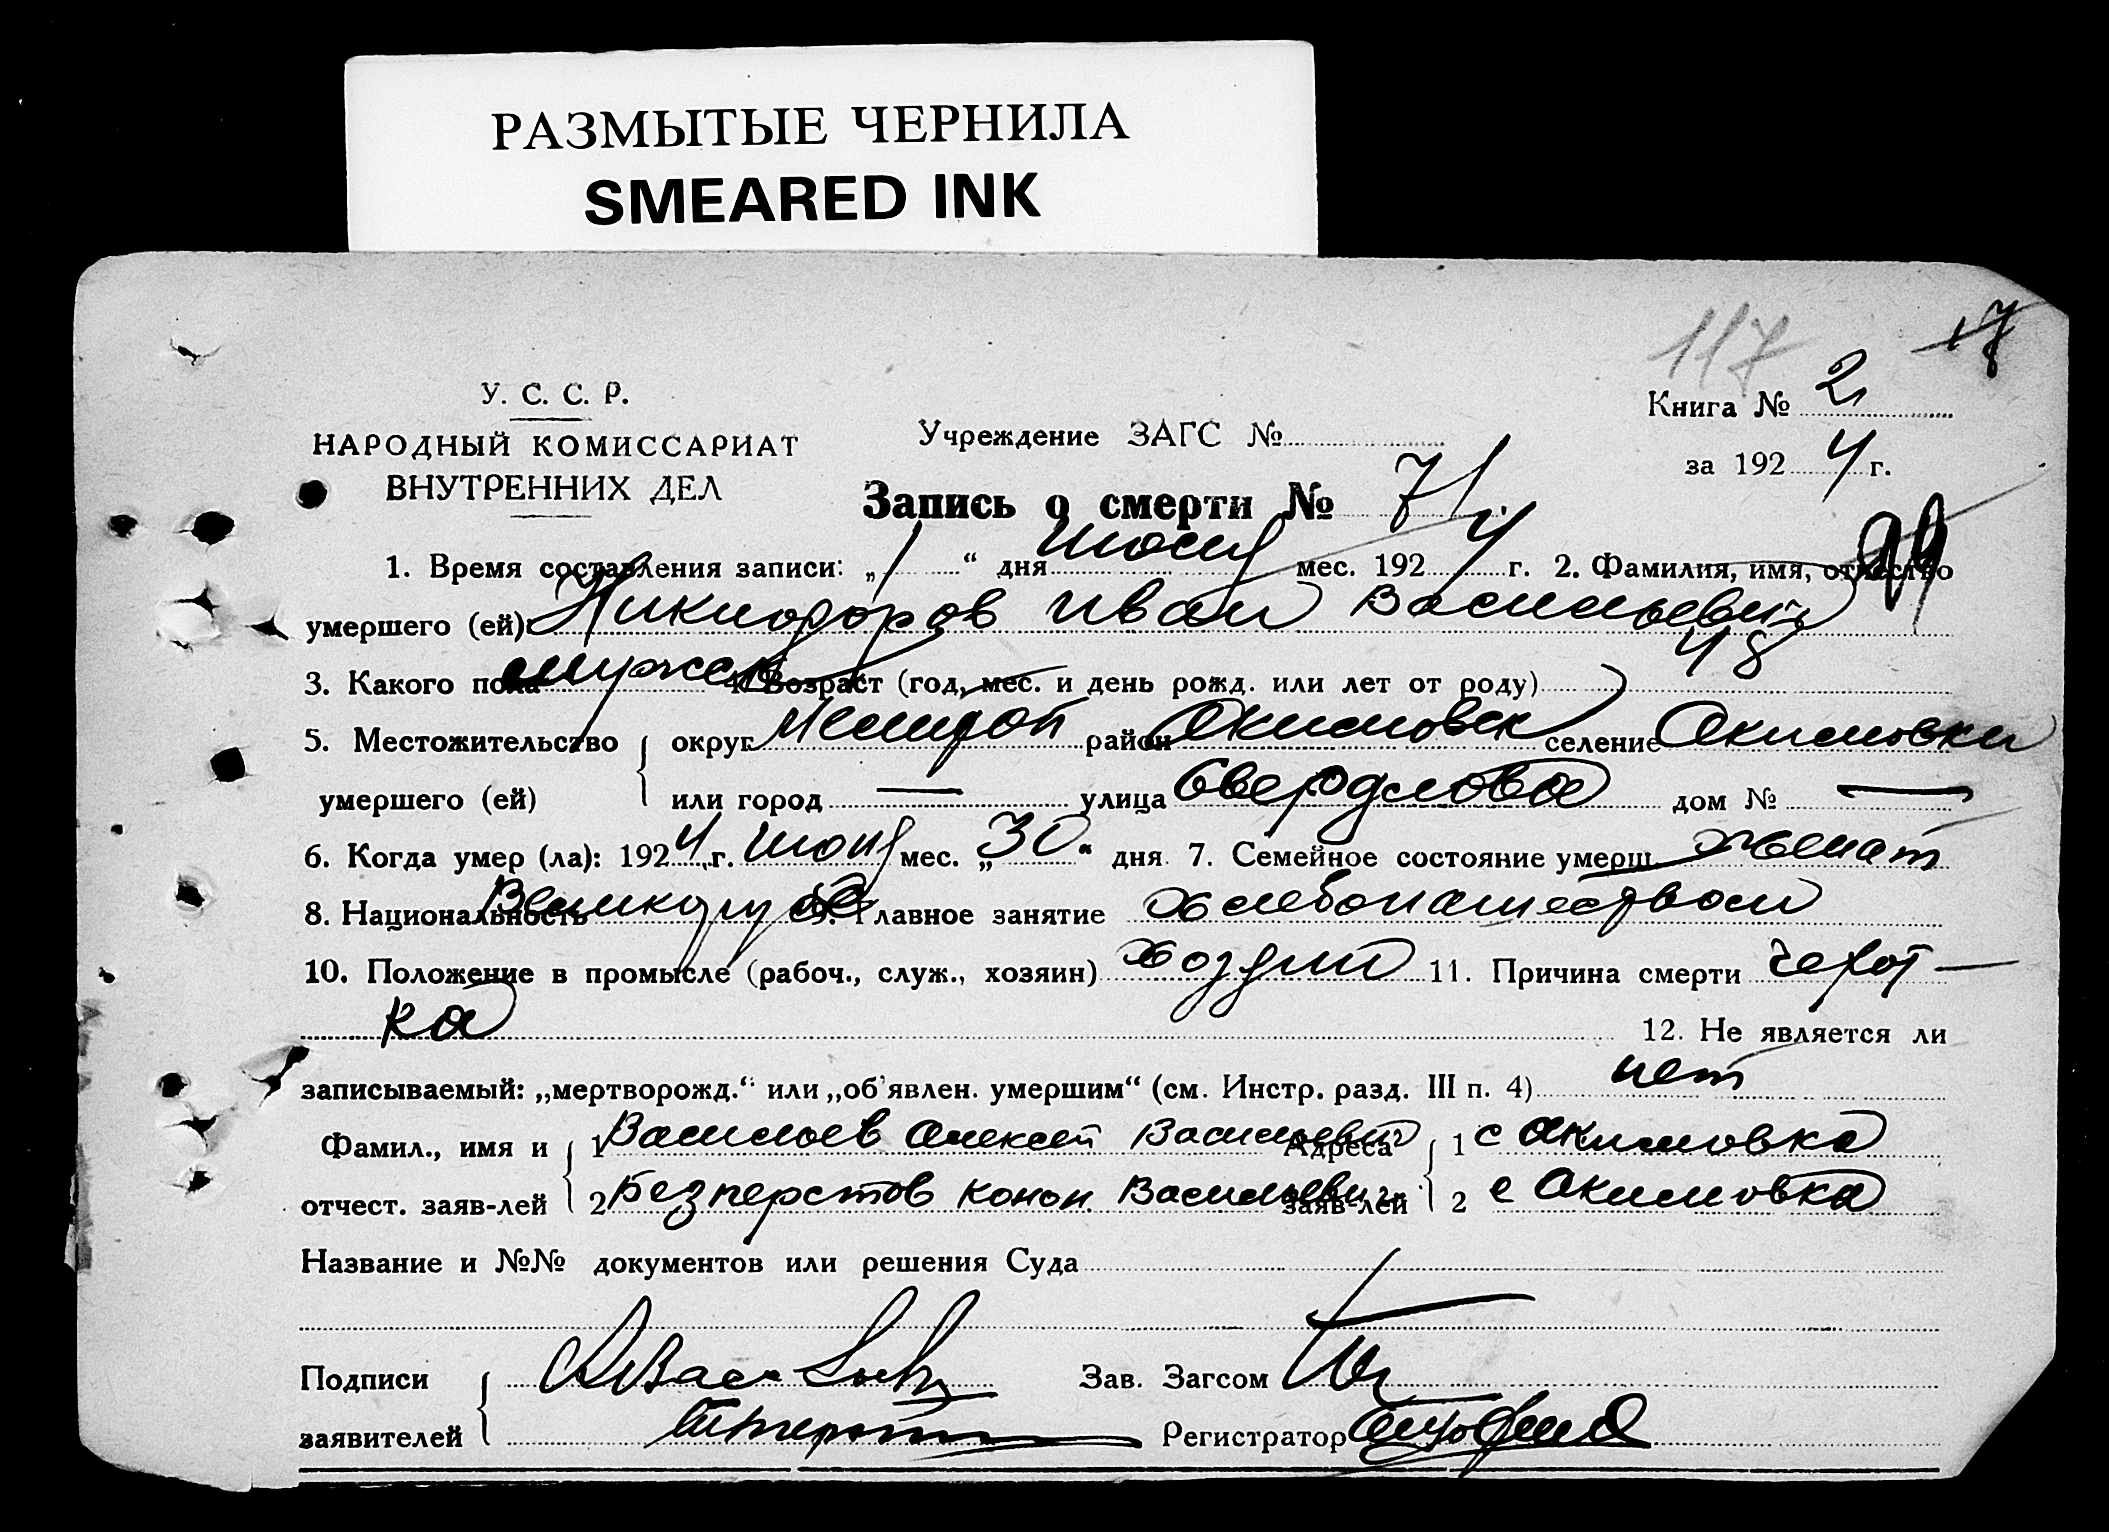 РАЗМЫТЫЕ ЧЕРНИЛА
SMEARED INK
117 17
У. С. С. Р.
НАРОДНЫЙ КОМИССАРИАТ
ВНУТРЕННИХ ДЕЛ
Учреждение ЗАГС №
Книга № 2
за 1924 г.
Запись о смерти № 71
1. Время составления записи: „1“ дня июля мес. 1924 г. 2. Фамилия, имя, отчество
умершего (ей): Никифоров Иван Васильевич
3. Какого пола мужск 4. Возраст (год, мес. и день рожд. или лет от роду) 48
5. Местожительство округ Мелитоп район Акимовск селение Акимовки
умершего (ей) или город — улица Свердлова дом № —
6. Когда умер (ла): 1924 г. июня мес. „30“ дня 7. Семейное состояние умерш. женат
8. Национальность Великорус 9. Главное занятие хлебопашеством
10. Положение в промысле (рабоч., служ., хозяин) хозяин 11. Причина смерти чахот-
ка
12. Не является ли
записываемый: „мертворожд.“ или „об'явлен. умершим“ (см. Инстр. разд. III п. 4) нет
Фамил., имя и 1 Васильев Алексей Васильевич Адреса 1 с Акимовка
отчест. заяв-лей 2 Безперстов Конон Васильевич заяв-лей 2 с Акимовка
Название и №№ документов или решения Суда
Подписи Зав. Загсом
заявителей Регистратор